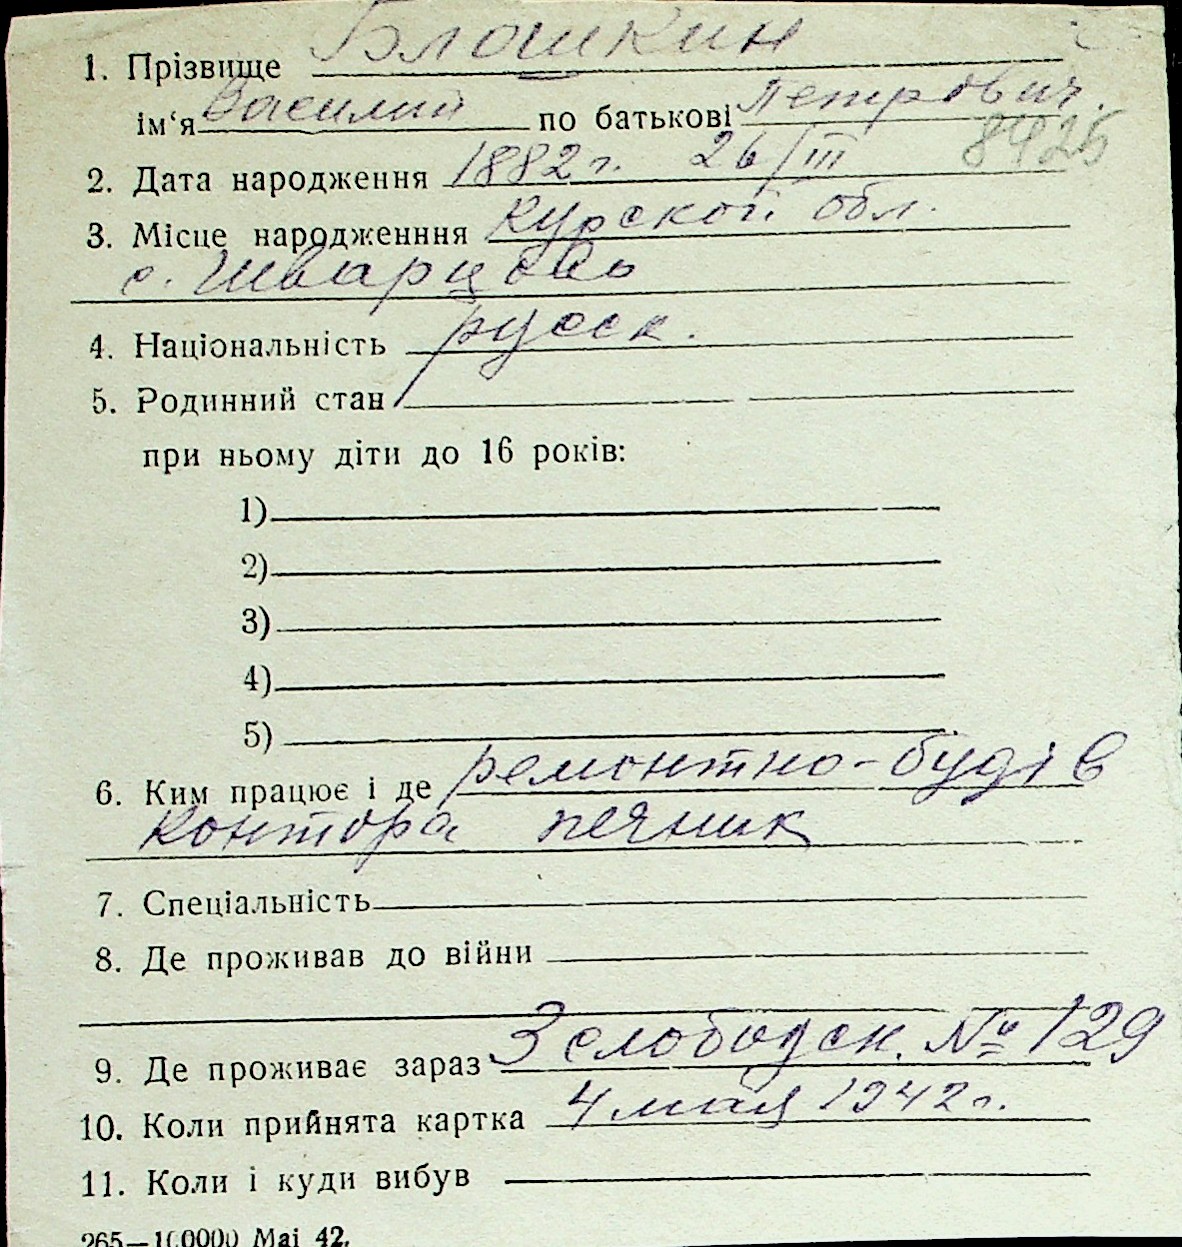 1. Прізвище Блошкин
ім‘я Василий по батькові Петрович.
8425
2. Дата народження 1882 г. 26/III
3. Місце народженння Курской обл.
с.
4. Національність русск.
5. Родинний стан
при ньому діти до 16 років:
1)
2)
3)
4)
5)
6. Ким працює і де ремонтно-будів
контора печник
7. Спеціальність
8. Де проживав до війни
9. Де проживає зараз 3 слободск. № 129
10. Коли прийнята картка 4 мая 1942 г.
11. Коли і куди вибув
265—10000 Маі 42.